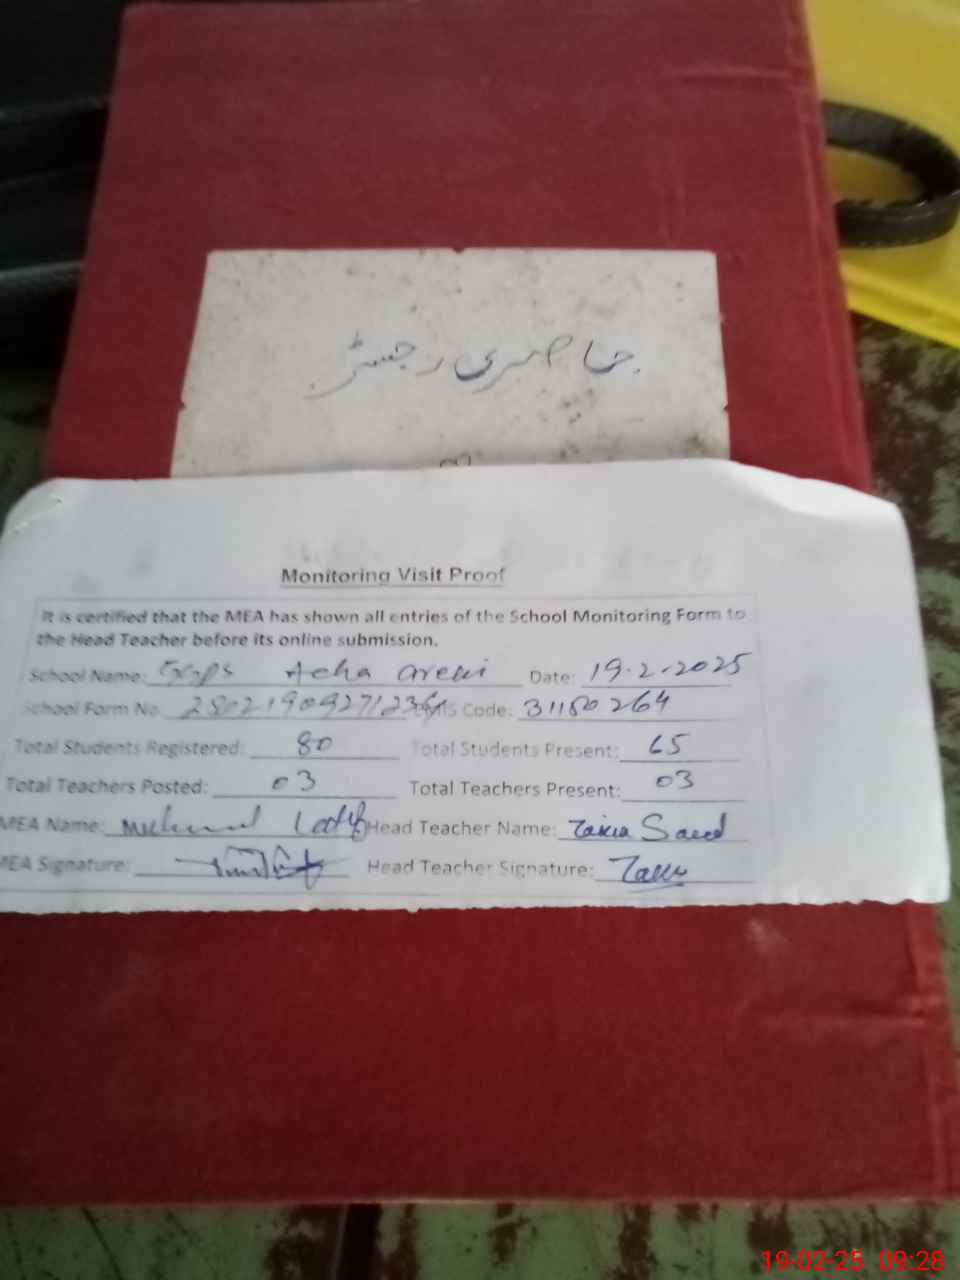 حاضری رجسٹر
Monitoring Visit Proof
It is certified that the MEA has shown all entries of the School Monitoring Form to
the Head Teacher before its online submission.
School Name: GGPS Acha Date: 19-2-2025
School Form No. Code: 31180264
Total Students Registered: 80 Total Students Present: 65
Total Teachers Posted: 03 Total Teachers Present: 03
MEA Name: Latif Head Teacher Name: Zakia Saeed
MEA Signature: Head Teacher Signature:
19-02-25 09:28